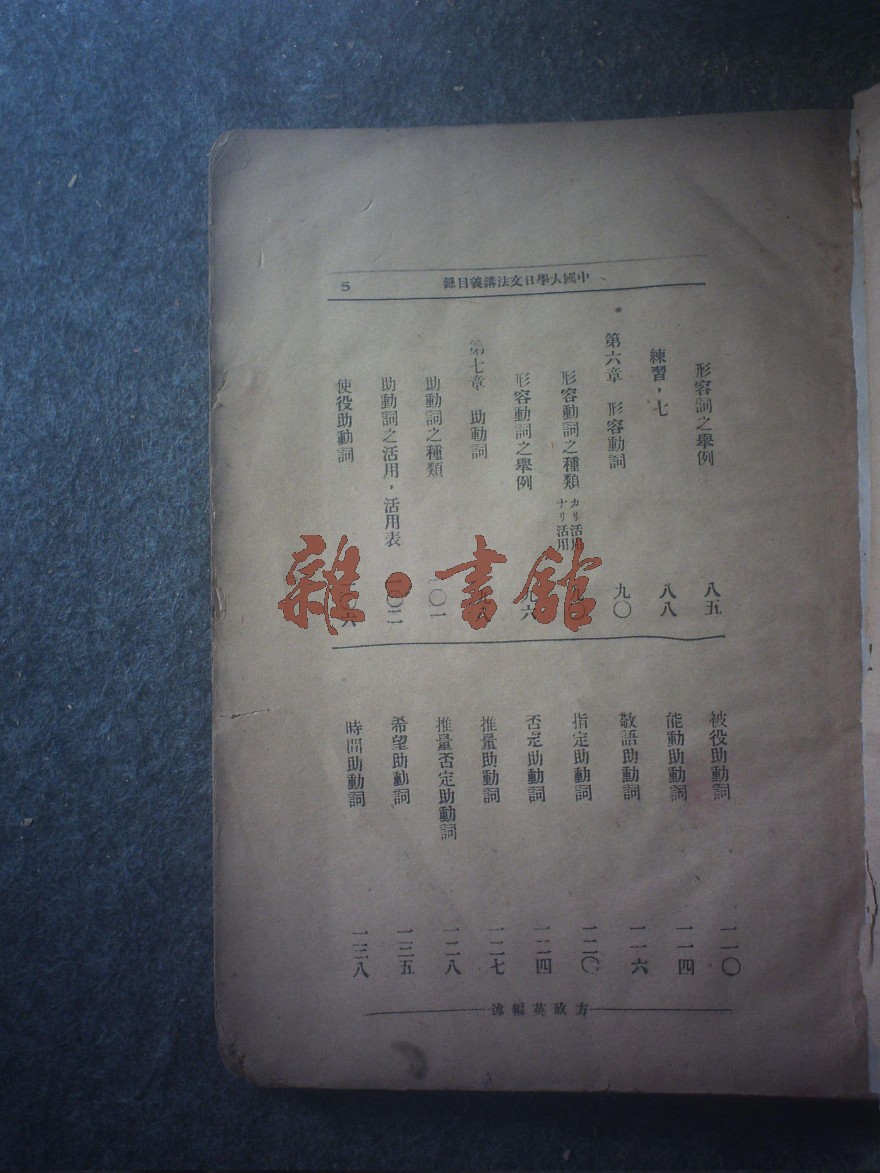 中國大學日文法講義目錄
5
形容詞之舉例 八五
練習,七 八八
第六章 形容動詞 九〇
形容動詞之種類 カリ活用 ナリ活用
形容動詞之舉例 九六
第七章 助動詞
助動詞之種類 一〇一
助動詞之活用,活用表 一〇二
使役助動詞
被役助動詞 一一〇
能動助動詞 一一四
敬語助動詞 一一六
指定助動詞 一二〇
否定助動詞 一二四
推量助動詞 一二七
推量否定助動詞 一二八
希望助動詞 一三五
時間助動詞 一三八
方政英編述
雜·書館